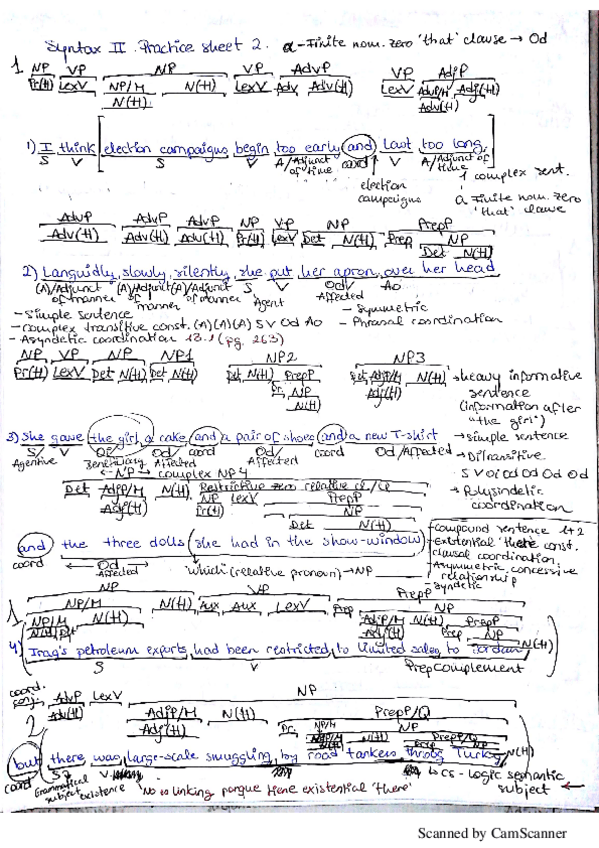 Syntax II. Practice sheet 2. a-Finite nom. zero 'that' clause → Od
1. NP VP NP VP AdvP VP AdjP
Pr(H) LexV NP/M N(H) LexV Adv Adv(H) LexV AdvP/M Adj(H)
N(H) Adv(H)
1) I think [election campaigns begin too early (and) last too long.
S V S V A/Adjunct of time coord V A/Adjunct of time
election campaigns
1 complex sent.
a Finite nom. zero 'that' clause
AdvP AdvP AdvP NP VP NP PrepP
Adv(H) Adv(H) Adv(H) Pr(H) LexV Det N(H) Prep NP
Det N(H)
2) Languidly, slowly, silently, she put her apron over her head
(A)/Adjunct of manner (A)/Adjunct of manner (A)/Adjunct of manner S V Od/ Ao
Agent Affected
- Simple sentence - Symmetric
- Complex transitive const. (A)(A)(A) S V Od Ao - Phrasal coordination
- Asyndetic coordination 13.1 (pg. 263)
NP VP NP NP1 NP2 NP3
Pr(H) LexV Det N(H) Det N(H) Det N(H) PrepP Det AdjP/M N(H)
Pr NP Adj(H)
N(H)
→ heavy informative sentence (information after "the girl")
3) She gave the girl a cake (and) a pair of shoes (and) a new T-shirt → Simple sentence
S/ V Oi/ Od/ coord Od/ coord Od/Affected → Ditransitive
Agentive Beneficiary Affected Affected S V Oi Od Od Od Od
NP → complex NP4 → Polysindetic coordination
Det AdjP/M N(H) Restrictive zero relative cl./CP
Adj(H) NP LexV PrepP
Pr(H) NP
Det N(H)
(and) the three dolls (she had in the show-window)
coord Od Affected which (relative pronoun) → NP
- Compound sentence 1+2
- Existential 'there' const.
- Clausal coordination
- Asymmetric: concessive relationship
- Syndetic
1 NP VP PrepP
NP/M N(H) Aux Aux LexV Prep NP
AdjP/M N(H) PrepP
Adj(H) Prep NP
N(H)
4) Iraq's petroleum exports had been restricted to limited sales to Jordan
S V PrepComplement
coord. conj. AdvP LexV NP
2 Adv(H) AdjP/M N(H) PrepP/Q
Adj(H) Pr NP
(but) there was large-scale smuggling by road tankers throug Turkey
coord Grammatical subject V existence → CS - Logic semantic subject
'No es linking porque tiene existential 'there'
Scanned by CamScanner